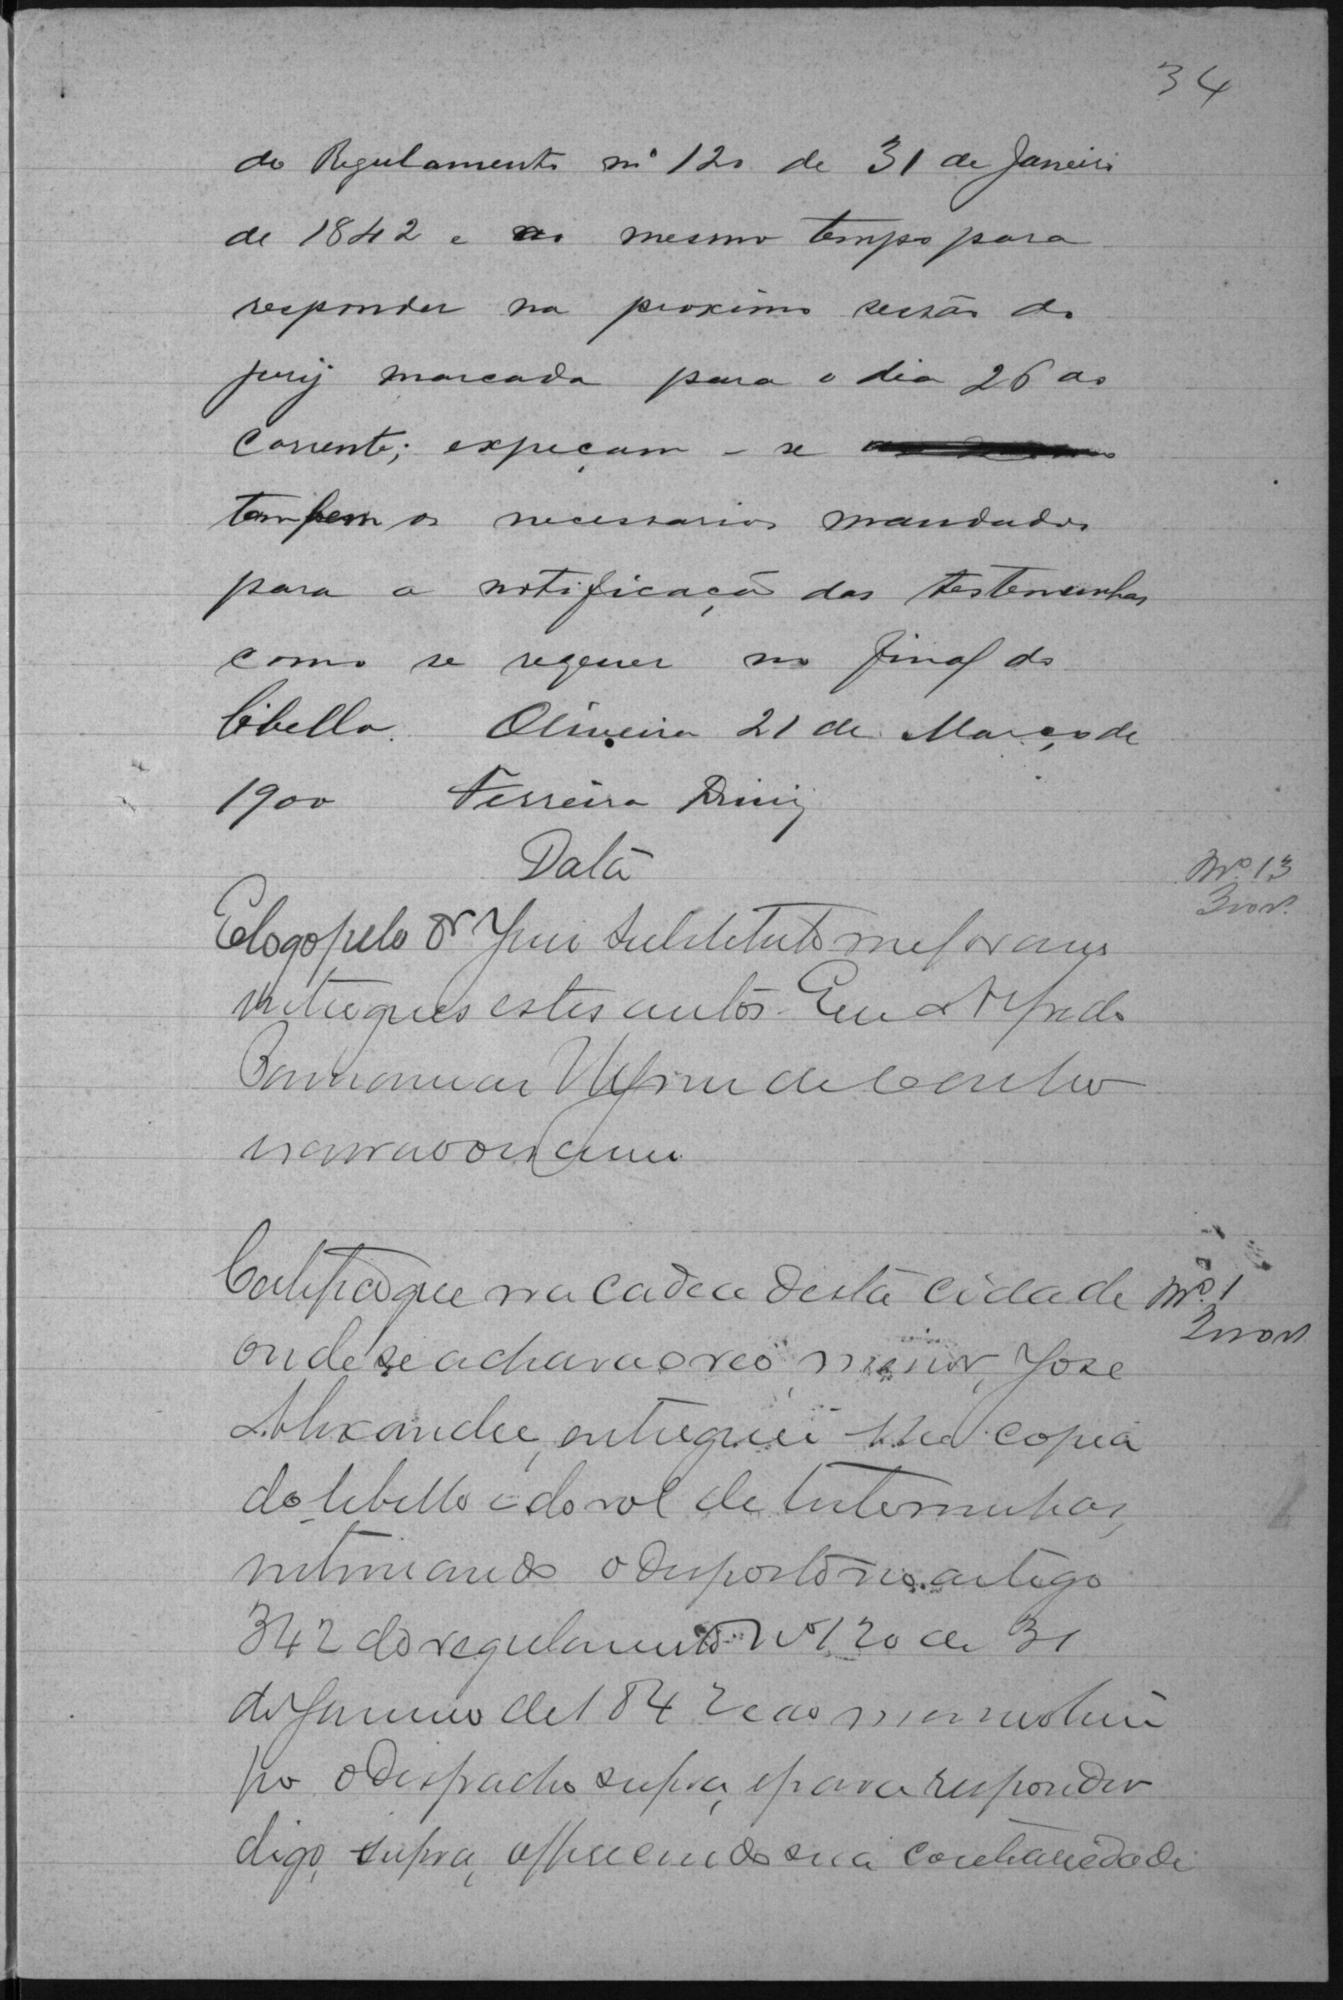 34
do Regulamento nº 120 de 31 de Janeiro
de 1842 e ao mesmo tempo para
responder na proxima sessão do
jury marcada para o dia 26 do
corrente; expeçam-se
tambem os necessarios mandados
para a notificação das testemunhas
como se requer no final do
libello. Oliveira 21 de Março de
1900 Ferreira Diniz
Data
E logo pelo Dr Juiz Substituto me foram
entregues estes autos. Eu Alfredo
de Castro

Nº 13
Certifico que na cadea desta cidade
Nº 1
onde se achava o reo, menor, Jose
Alexandre, entreguei-lhe copia
do libello e do rol de testemunhas,
intimando o disposto no artigo
342 do regulamento Nº 120 de 31
de Janeiro de 1842 e ao mesmo tem
po o despacho supra, e para responder
digo, supra, offerecendo sua contrariedade